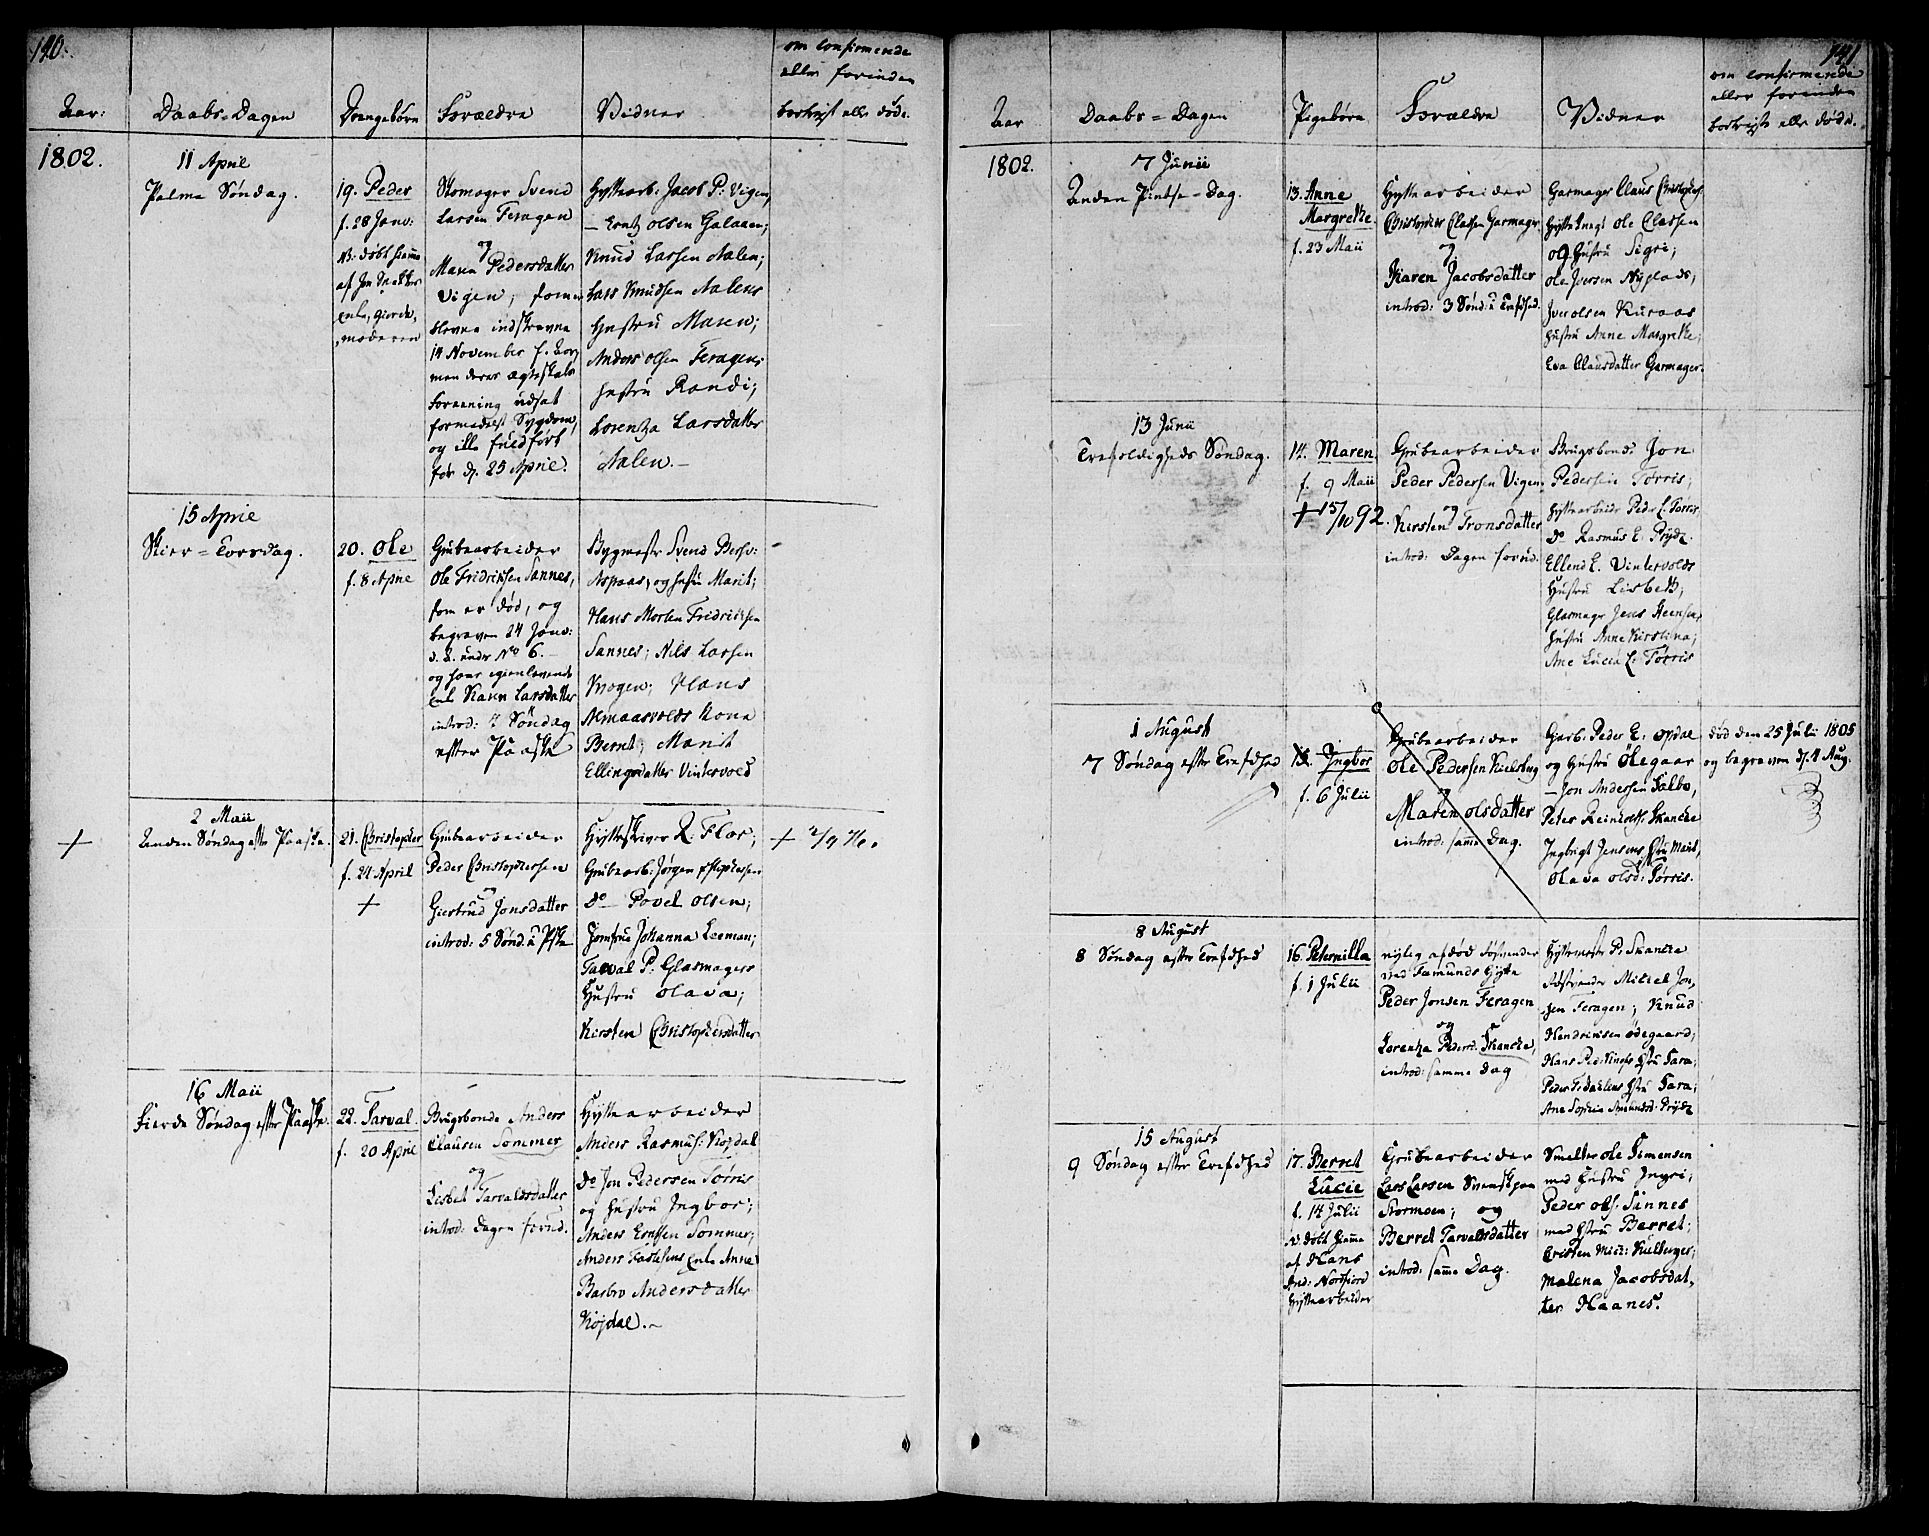 140.
Aar:
Daabs-Dagen
Drengebørn
Forældre
Vidner
om confirmerede
eller forinden
bortreist eller døde.
1802.
11 April
Palme Søndag.
19. Peder
f. 28 Janv:
NB. døbt hiemme
Skomager Svend
Larsen Feragen
og
Maren Pedersdatter
Vigen; som ere
blevne indskrevne
14 November f. Aar,
men deres ægteskabs
Foreening udsat
formedelst Sygdom,
og ille fuldført
før d. 25 April.
Hyttearb. Jacob P: Vigen,
— Erntz Olsen Galaaen;
Knud Larsen Aalen;
Lars Knudsen Aalens
Hustru Maren;
Anders Olsen Feragens
Hustru Randi;
Lorentza Larsdatter
Aalen.—
15 April
Skier-Torsdag.
20. Ole
f. 8 April
Grubearbeider
Ole Fridrichsen Sannes,
som er død, og
begraven 24 Janv:
d. A. under No 6.—
og hans igienlevende
Enke Karen Larsdatter
introd: 2 Søndag
efter Paaske
Bygmester Svend Bersv:
Aspaas, og Hustru Marit;
Hans Morten Fridrichsen
Sannes; Nils Larsen
Krogen; Hans
Almaasvolds Kone
Bernt; Marit
Ellingsdatter Vintervold
+
2 Maii
Anden Søndag efter Paaske.
21. Christopher
f. 24 April
+
Grubearbeider
Peder Christophersen
og
Giertrud Jonsdatter
introd: 5 Sønd. a Pske
Hytteskriver R. Flor;
Grubearb: Jørgen Chstophersen
do Povel Olsen;
Jomfrue Johanna Leeman;
Tarval P. Glasmagers
Hustru Olava;
Kirsten Christophersdatter
+ 2/4 76.
16 Maii
Fierde Søndag efter Paaske.
22. Tarval.
f. 20 April
Brugsbonde Anders
Clausen Sommer
og
Lisbet Tarvaldsdatter
introd: Dagen forud.
Hyttearbeider
Anders Rasmus: Kojdal
do Jon Pedersen Tørris
og Hustru Ingbor;
Anders Erntsen Sommer;
Anders Fastesens Enke Anne;
Barbro Andersdatter
Kojdal.—
141
Aar
Daabs-Dagen
Pigebørn
Forældre
Vidner
om confirmerede
eller forinden
bortreiste eller døde.
1802.
7 Junii
Anden Pintse-Dag.
13. Anne
Margrethe.
f. 23 Maii
Hyttearbeider
Christopher Clasen Garmager
og
Karen Jacobsdatter
introd: 3 Sønd: a Trefdhed.
Garmager Claus Christophers:
Ole Classen
og Hustru Sigri;
Ole Iversen Nyplads;
Iver Olsen Kuraas
Hustru Anne Margrethe;
Eva Clausdatter Garmager.
13 Junii
Trefoldigheds Søndag.
14. Maren
f. 9 Maii
+ 15/10 92.
Grubearbeider
Peder Pedersen Vigen
og
Kirsten Tronsdatter
introd: Dagen forud.
Brugsbond: Jon
Pedersen Tørris;
Hyttearbeider Peder L. Tørris,
do Rasmus E. Prydz.
Ellend E. Vintervolds
Hustru Lisbeth;
Glasmager Jens Steensens
Hustru Anne Kirstina;
Ane Lucia L. Tørris
1 August
7 Søndag efter Trefdhed
15. Ingbor
f. 6 Julii
Grubearbeider
Ole Pedersen Kielsberg
og
Maren Olsdatter
introd: samme Dag.
Garb: Peder E. Opdal
og Hustru Ølegaar
— Jon Andersen Galbo,
Peter Reinholt Skancke
Ingbrigt Jensens Hstru Marit,
Olava Olsd: Tørris.
død den 25 Juli 1805
og begraven d. 4 Aug.
8 August
8 Søndag efter Trefdhed
16. Peternilla
f. 1 Julii
nylig afdød Fostvender
ved Femunds Hytte
Peder Jonsen Feragen
og
Lorentza Pedersd. Skancke,
introd: samme dag
Hyttemester P. Skancke
Fostvender Mikkel Jon,
sen Feragen; Knud
Hendrichsen Ødegaard;
Hans Hstru Sara;
Hstru Sara;
Ane Sophia Amundsd: Prydz
15 August
9 Søndag efter Trefdhed
17. Berret
Lucie
f. 14 Julii
N. døbt hiemme
af Hans
And: Nordfiord
Hyttearbeider
Grubearbeider
Lars Larsen Svenskpaa
Stormoen; og
Berret Tarvaldsdatter
introd: samme Dag.
Smelter Ole Simensen
med Hustru Ingri;
Peder Ols: Sannes
med Hstru Berret;
Cristen Mich: Kulberger;
Malena Jacobsdat,
ter Haanes.